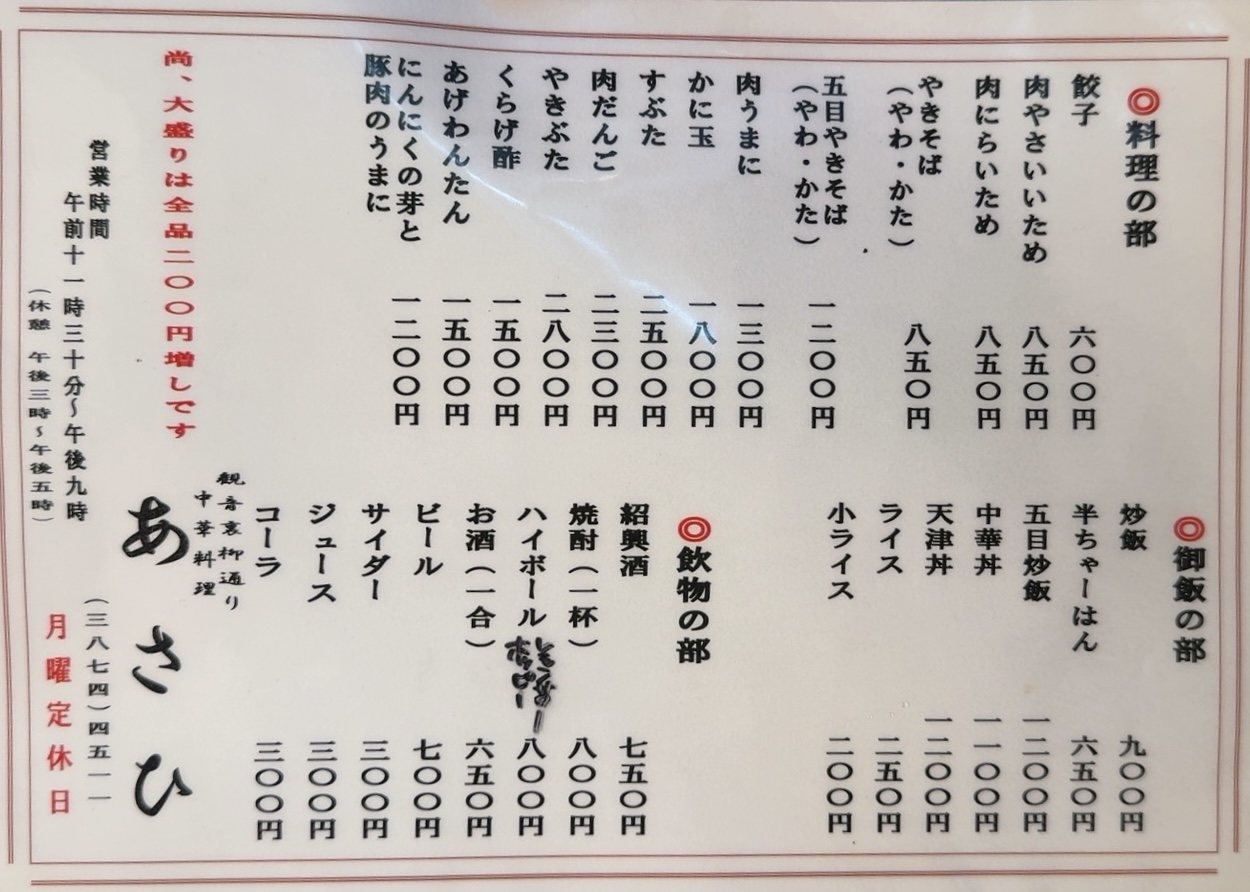 ◎料理の部
餃子 六〇〇円
肉やさいいため 八五〇円
肉にらいため 八五〇円
やきそば
（やわ・かた） 八五〇円
五目やきそば
（やわ・かた） 一二〇〇円
肉うまに 一三〇〇円
かに玉 一八〇〇円
すぶた 二五〇〇円
肉だんご 二三〇〇円
やきぶた 二八〇〇円
くらげ酢 一五〇〇円
あげわんたん 一五〇〇円
にんにくの芽と
豚肉のうまに 一二〇〇円
◎御飯の部
炒飯 九〇〇円
半ちゃーはん 六五〇円
五目炒飯 一二〇〇円
中華丼 一一〇〇円
天津丼 一二〇〇円
ライス 二五〇円
小ライス 二〇〇円
◎飲物の部
紹興酒 七五〇円
焼酎（一杯） 八〇〇円
ハイボール 八〇〇円
お酒（一合） 六五〇円
ビール 七〇〇円
サイダー 三〇〇円
ジュース 三〇〇円
コーラ 三〇〇円
尚、大盛りは全品二〇〇円増しです
営業時間
午前十一時三十分～午後九時
（休憩 午後三時～午後五時）
観音裏柳通り
中華料理
あさひ
（三八七四）四五一一
月曜定休日